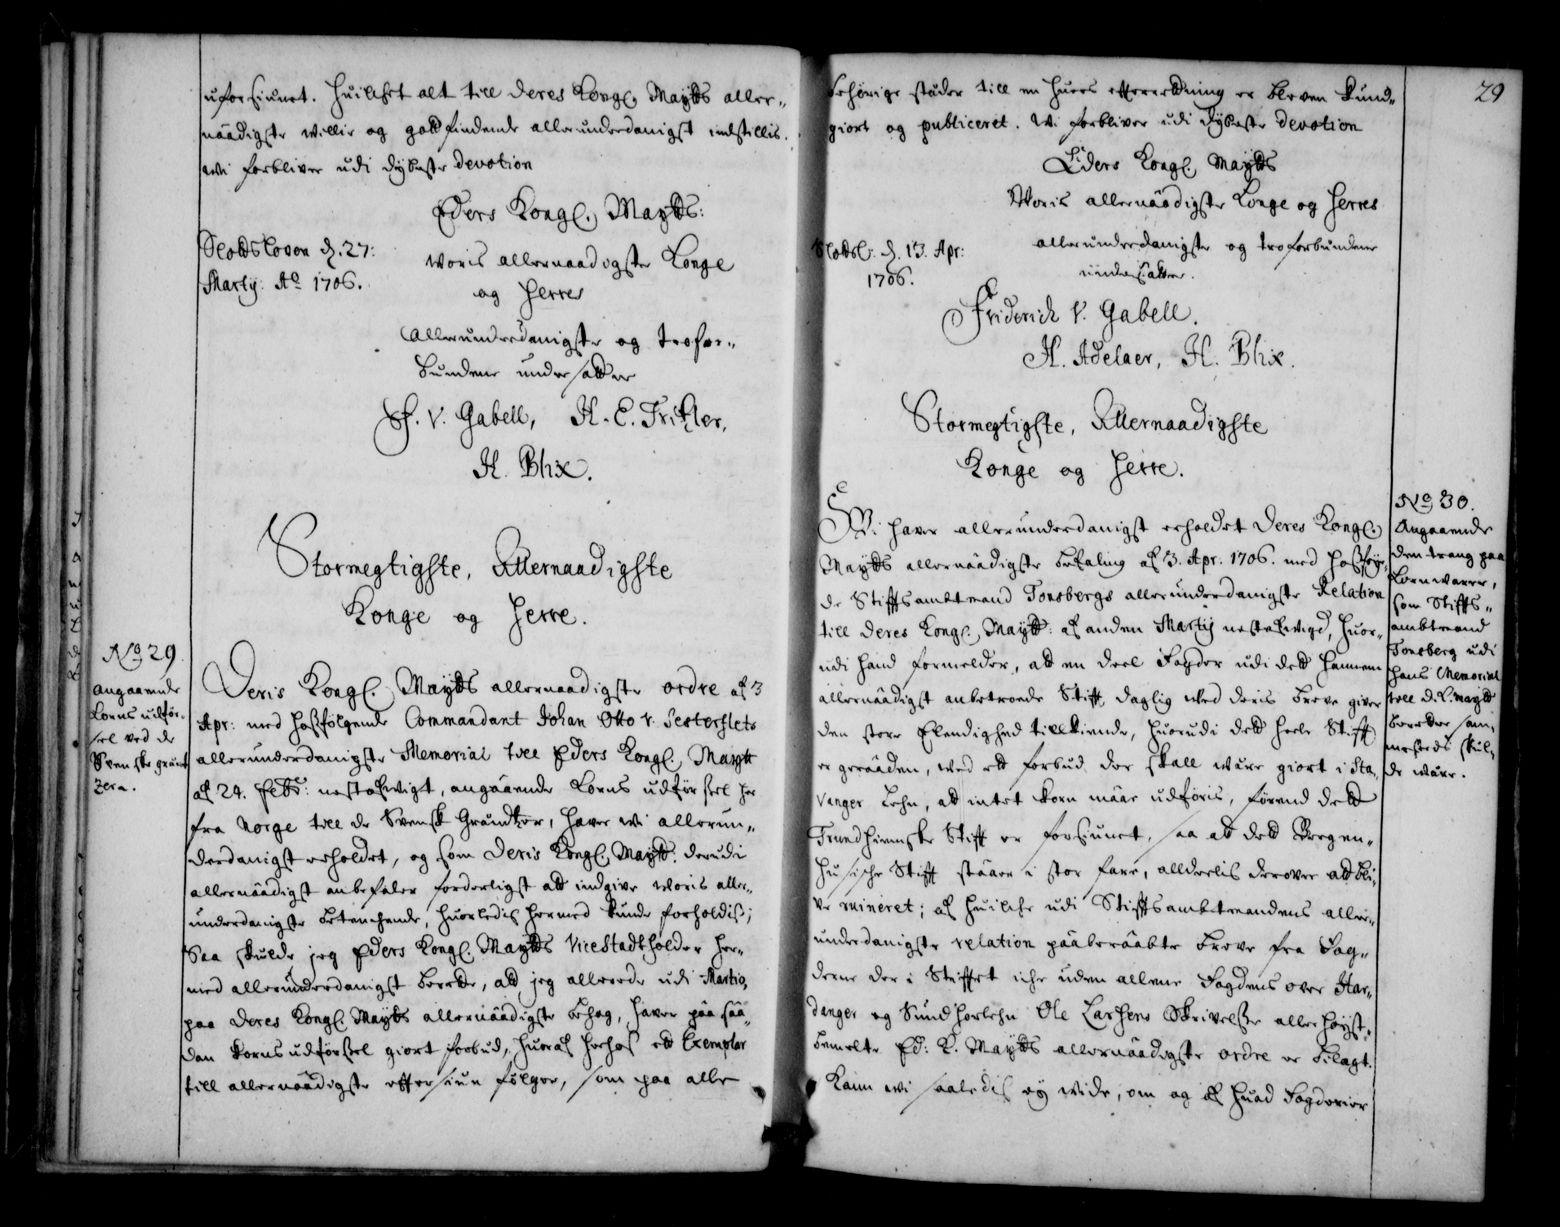 uforsiunet. Huilchet alt till Deres Kongl. Maytts aller-
naadigste willie og gotfindende allerunderdanigst indstillis.
wi forbliver udi dybeste devotion
Eders Kongl. Maytts:
Slotsloven d. 27:
Martij Ao 1706.
woris allernaadigste Konge
og Herres
Allerunderdanigste og trofor-
bundene undersaatter
F. V. Gabell, H. E.
H. Blix.
Stormegtigste, Allernaadigste
Konge og Herre.
No 29.
angaaende
Korns udför-
sel ved de
Svenske grænt
zer.
Deris Kongl. Maytts allernaadigste ordre af 3
Apr: med hosfölgende Commandant Johan Otto v.
allerunderdanigste Memorial till Eders Kongl. Maytt
af 24. Febr: nestafwigt, angaaende Korns udförsel her
fra Norge till de Svensk Gräntzer, haver wi allerun-
derdanigst erholdet, og som Deris Kongl. Maytt. derudi
allernaadigst anbefaler forderligst at indgive woris aller-
underdanigste betenchende, huorledis hermed kunde forholdis;
Saa skulde jeg Eders Kongl. Maytts ViceStatholder her-
med allerunderdanigst berette, at jeg allerede udi Martio,
paa Deres Kongl. Maytts allernaadigste behag, haver paa saa-
dan Korns udförsel giort forbud, huoraf herhos et Exemplar
till allernaadigste eftersiun fölger, som paa alle
29
behörige stæder till en huers efterretning er bleven kund-
giort og publiceret. Wi forbliver udi dybeste devotion
Eders Kongl. Maytts
Woris allernaadigste Konge og Herres
Slotsl: d. 13. Apr:
1706.
allerunderdanigste og troforbundene
undersatter.
Friderich V. Gabell.
H. Adelaer, H. Blix.
Stormegtigste, Allernaadigste
Konge og Herre.
No 30.
Angaaende
den trang paa
Kornwarer,
som Stifts-
ambtmand
Tonsberg udi
hans Memorial
till D. K. Maytt
beretter
skul-
de wære.
Wi haver allerunderdanigst erholdet Deres Kongl.
Maytts allernaadigste befaling af 3. Apr. 1706. med hosföy-
de Stiftsambtmand Tonsbergs allerunderdanigste Relation
till Deres Kongl. Maytt: af anden Martij nestafwigt, huor-
udi hand formelder, at en deel Fogder udi det hannem
allernaadigst anbetroede Stift daglig med deris breve giver
den store Elendighed tilkiende, huorudi det heele Stift
er geraaden, wed et forbud der skall wære giort i Sta-
vanger Lehn, at intet korn maae udföris, förend det
Trundhiemske Stift er forsiunet, saa at det Bergen-
husische Stift staaer i stor fare, alldeelis derover at bli-
ve ruineret; af huilche udi Stiftsambtmandens aller-
underdanigste relation paaberaabte breve fra Fog-
derne der i Stiftet iche uden allene Fogdens over Har-
danger og Sundhorlehn Ole Larsens Skrivelse allerhöyst-
bemelte Ed: K. Maytts allernaadigste ordre er bilagt.
Kann wi saaledis ey wide, om og af huad Fogderier